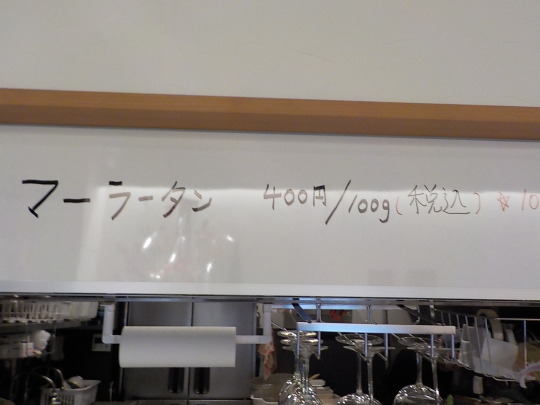 マーラータン 400円/100g(税込) ※10